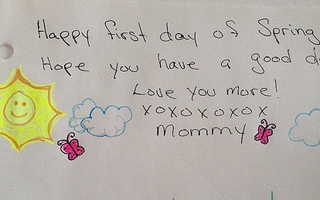 Happy first day of Spring
Hope you have a good d
Love you more!
xoxoxoxox
Mommy